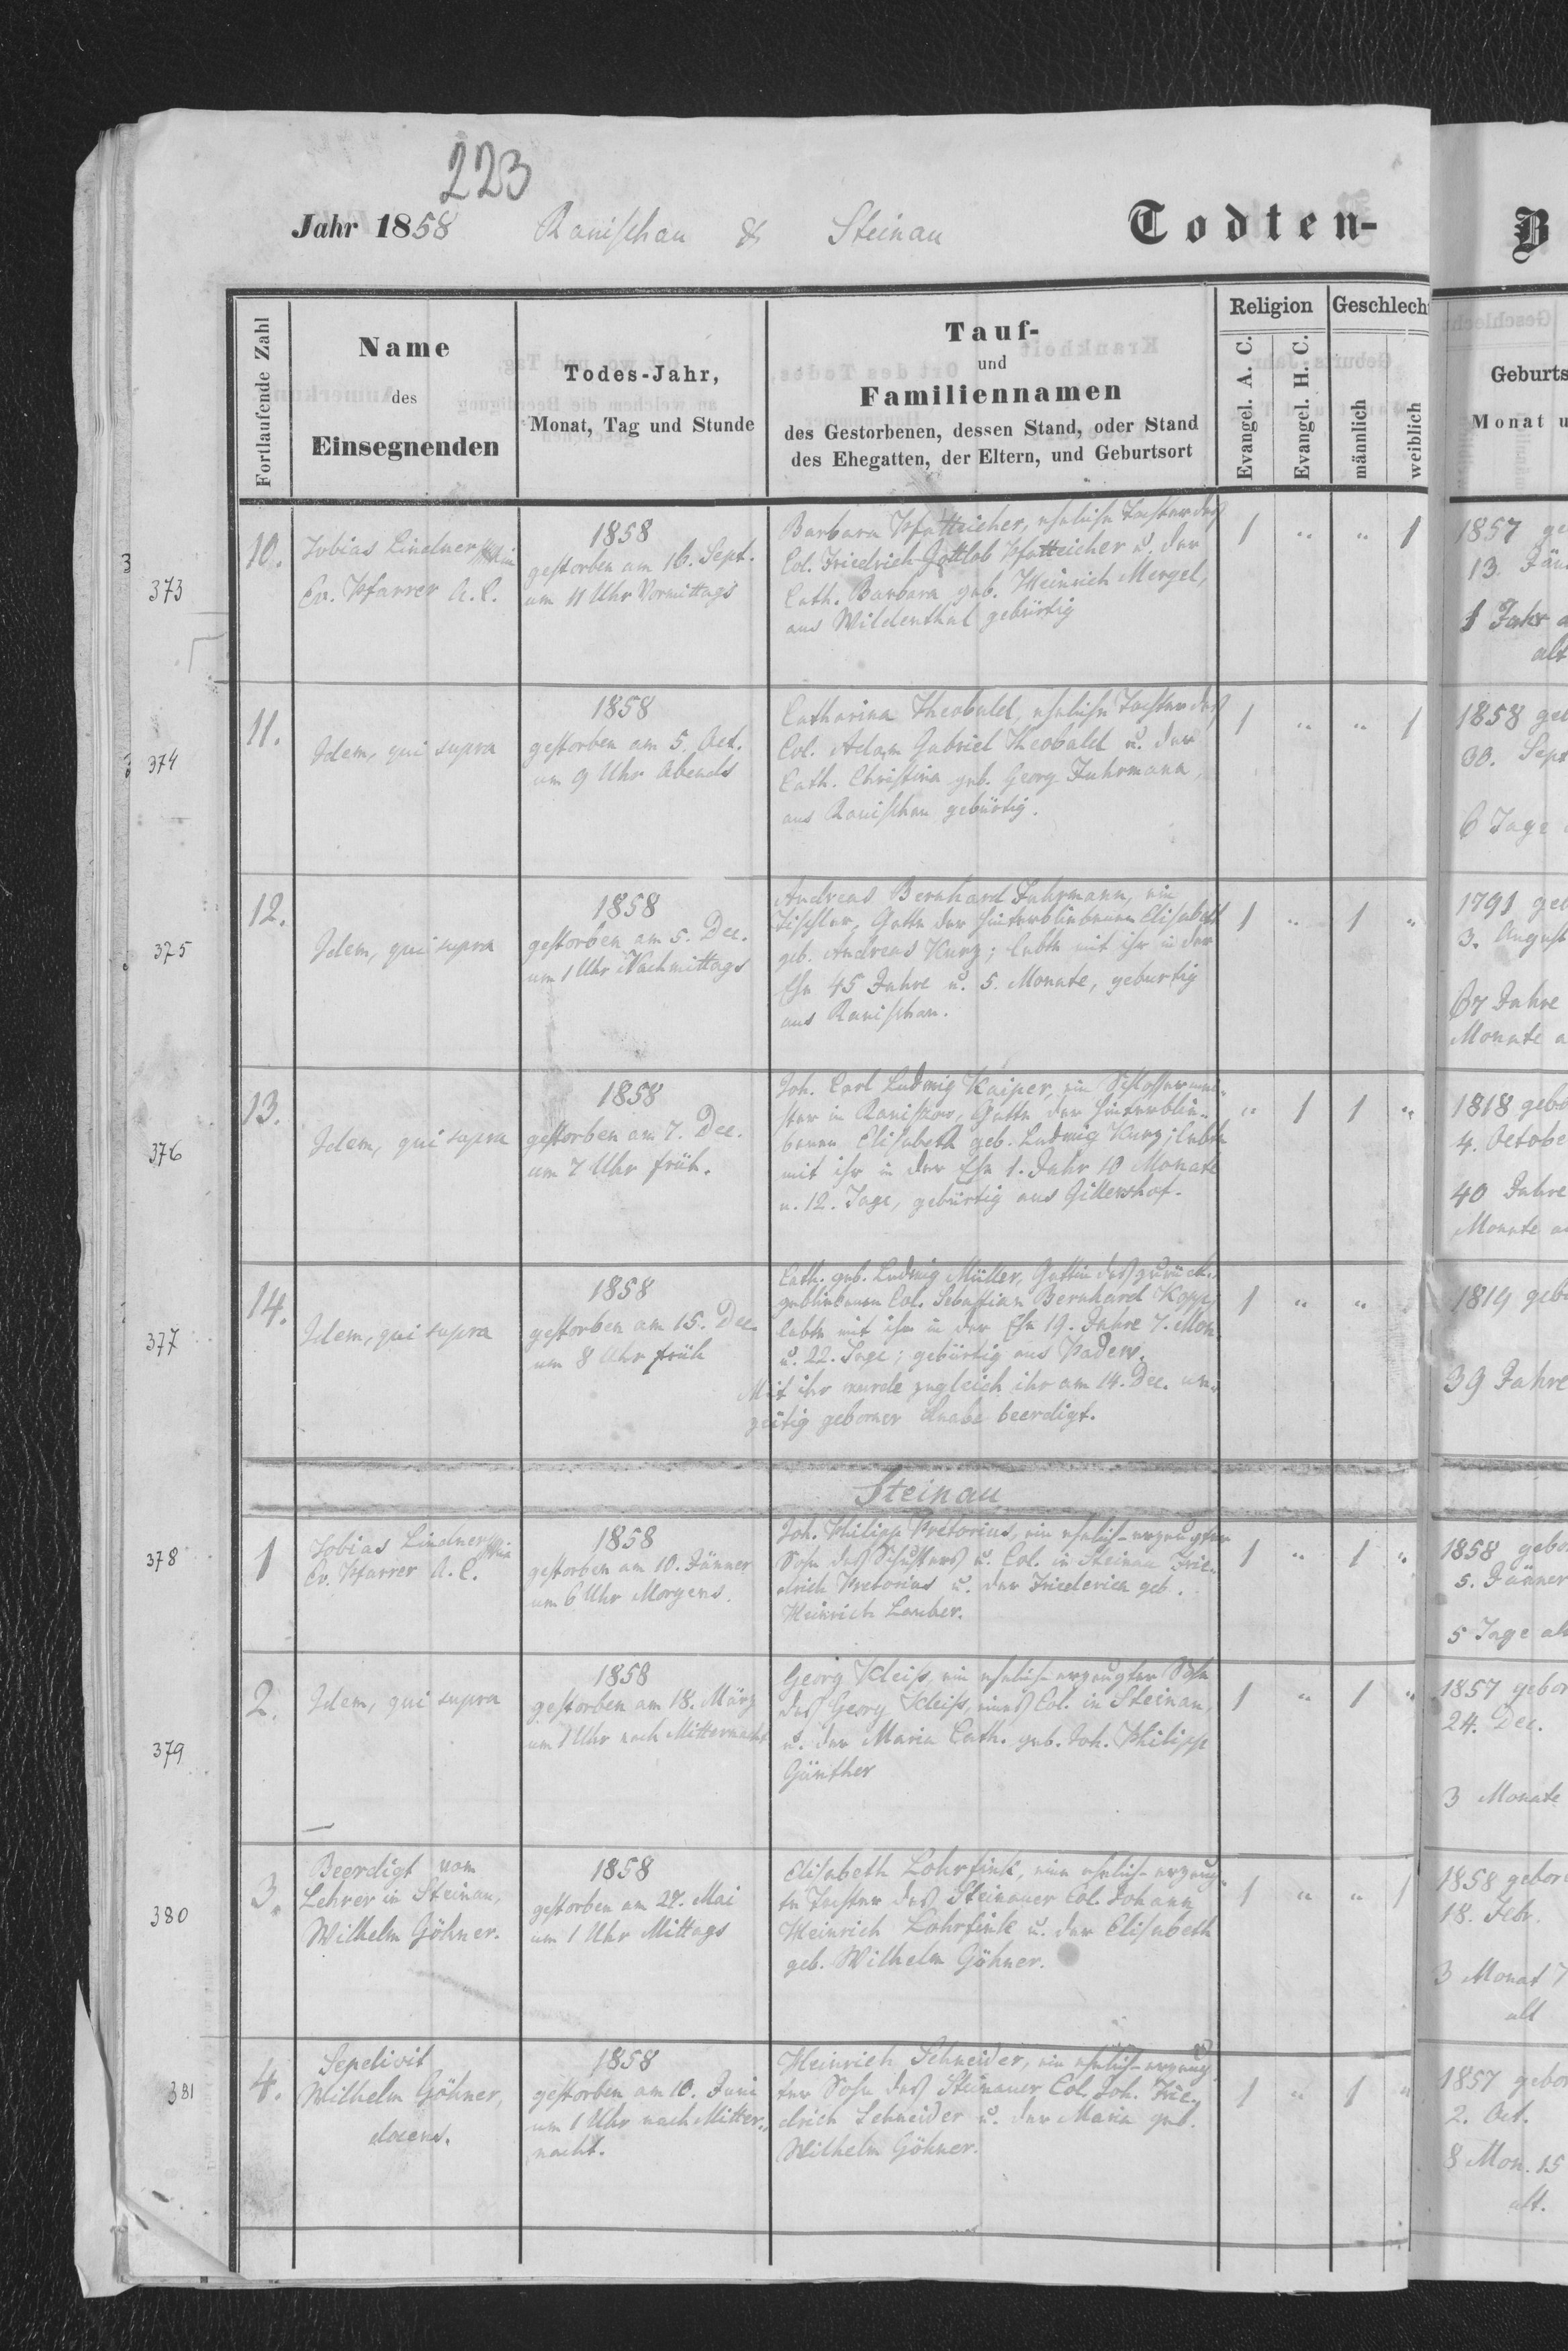 223
Jahr 1858 Ranischau & Steinau Todten-
B
Fortlaufende Zahl
Name
des
Einsegnenden
Todes-Jahr,
Monat, Tag und Stunde
Tauf-
und
Familiennamen
des Gestorbenen, dessen Stand, oder Stand
des Ehegatten, der Eltern, und Geburtsort
Religion
Evangel. A. C.
Evangel. H. C.
Geschlech
männlich
weiblich
Geburts
Monat u
373
10.
Tobias Lindner
Ev. Pfarrer A. C.
1858
gestorben am 16. Sept.
um 11 Uhr Vormittags
Barbara Pfatteicher, eheliche Tochter des
Col. Friedrich Gottlob Pfatteicher u. der
Cath. Barbara geb. Heinrich Mergel,
aus Wildenthal gebürtig
1 " " 1
1857 ge
13. Jän
1 Jahr a
alt
374
11.
Idem, qui supra
1858
gestorben am 5. Oct.
um 9 Uhr Abends
Catharina Theobald, eheliche Tochter des
Col. Adam Gabriel Theobald u. der
Cath. Christina geb. Georg Fuhrmann,
aus Ranischau gebürtig.
1 " " 1
1858 geb
30. Sept
6 Tage
375
12.
Idem, qui supra
1858
gestorben am 5. Dec.
um 1 Uhr Nachmittags
Andreas Bernhard Fuhrmann, ein
Tischler, Gatte der hinterbliebenen Elisabeth
geb. Andreas Kurz; lebte mit ihr in der
Ehe 45 Jahre u. 5. Monate, gebürtig
aus Ranischau.
1 " 1 "
1791 geb
3. August
67 Jahre
Monate a
376
13.
Idem, qui supra
1858
gestorben am 7. Dec.
um 7 Uhr früh.
Joh. Carl Ludwig Kaiper, ein Schlossermei-
ster in Ranischau, Gatte der hinterblie-
benen Elisabeth geb. Ludwig Kurz; lebte
mit ihr in der Ehe 1. Jahr 10 Monate
u. 12. Tage, gebürtig aus Gillershof.
" 1 1 "
1818 gebo
4. Octobe
40 Jahre
Monate a
377
14.
Idem, qui supra
1858
gestorben am 15. Dec.
um 8 Uhr früh
Cath. geb. Ludwig Müller, Gattin des zurück-
gebliebenen Col. Sebastian Bernhard Kopp,
lebte mit ihm in der Ehe 19. Jahre 7. Mon.
u. 22. Tage; gebürtig aus Padew.
Mit ihr wurde zugleich ihr am 14. Dec. un-
zeitig geborner Knabe beerdigt.
1 " "
1819 gebo
39 Jahre
Steinau
378
1
Tobias Lindner
Ev. Pfarrer A. C.
1858
gestorben am 10. Jänner
um 6 Uhr Morgens.
Joh. Philipp Pretorius, ein ehelich-erzeugter
Sohn des Schusters u. Col. in Steinau Frie-
drich Pretorius u. der Friederica geb.
Heinrich Lauber.
1 " 1 "
1858 gebo
5. Jänner
5 Tage alt
379
2.
Idem, qui supra
1858
gestorben am 18. März
um 1 Uhr nach Mitternacht
Georg Kleiss, ein ehelich-erzeugter Sohn
des Georg Kleiss, eines Col. in Steinau,
u. der Maria Cath. geb. Joh. Philipp
Günther
1 " 1 "
1857 gebor
24. Dec.
3 Monate
380
3.
Beerdigt vom
Lehrer in Steinau,
Wilhelm Göhner.
1858
gestorben am 27. Mai
um 1 Uhr Mittags
Elisabeth Lohrfink, eine ehelich-erzeug-
te Tochter des Steinauer Col. Johann
Heinrich Lohrfink u. der Elisabeth
geb. Wilhelm Göhner.
1 " " 1
1858 gebore
18. Febr.
3 Monat 7
alt
381
4.
Sepelivit
Wilhelm Göhner,
docens.
1858
gestorben am 10. Juni
um 1 Uhr nach Mitter-
nacht.
Heinrich Schneider, ein ehelich-erzeug-
ter Sohn des Steinauer Col. Joh. Frie-
drich Schneider u. der Maria geb.
Wilhelm Göhner.
1 " 1 "
1857 gebor
2. Oct.
8 Mon. 15
alt.